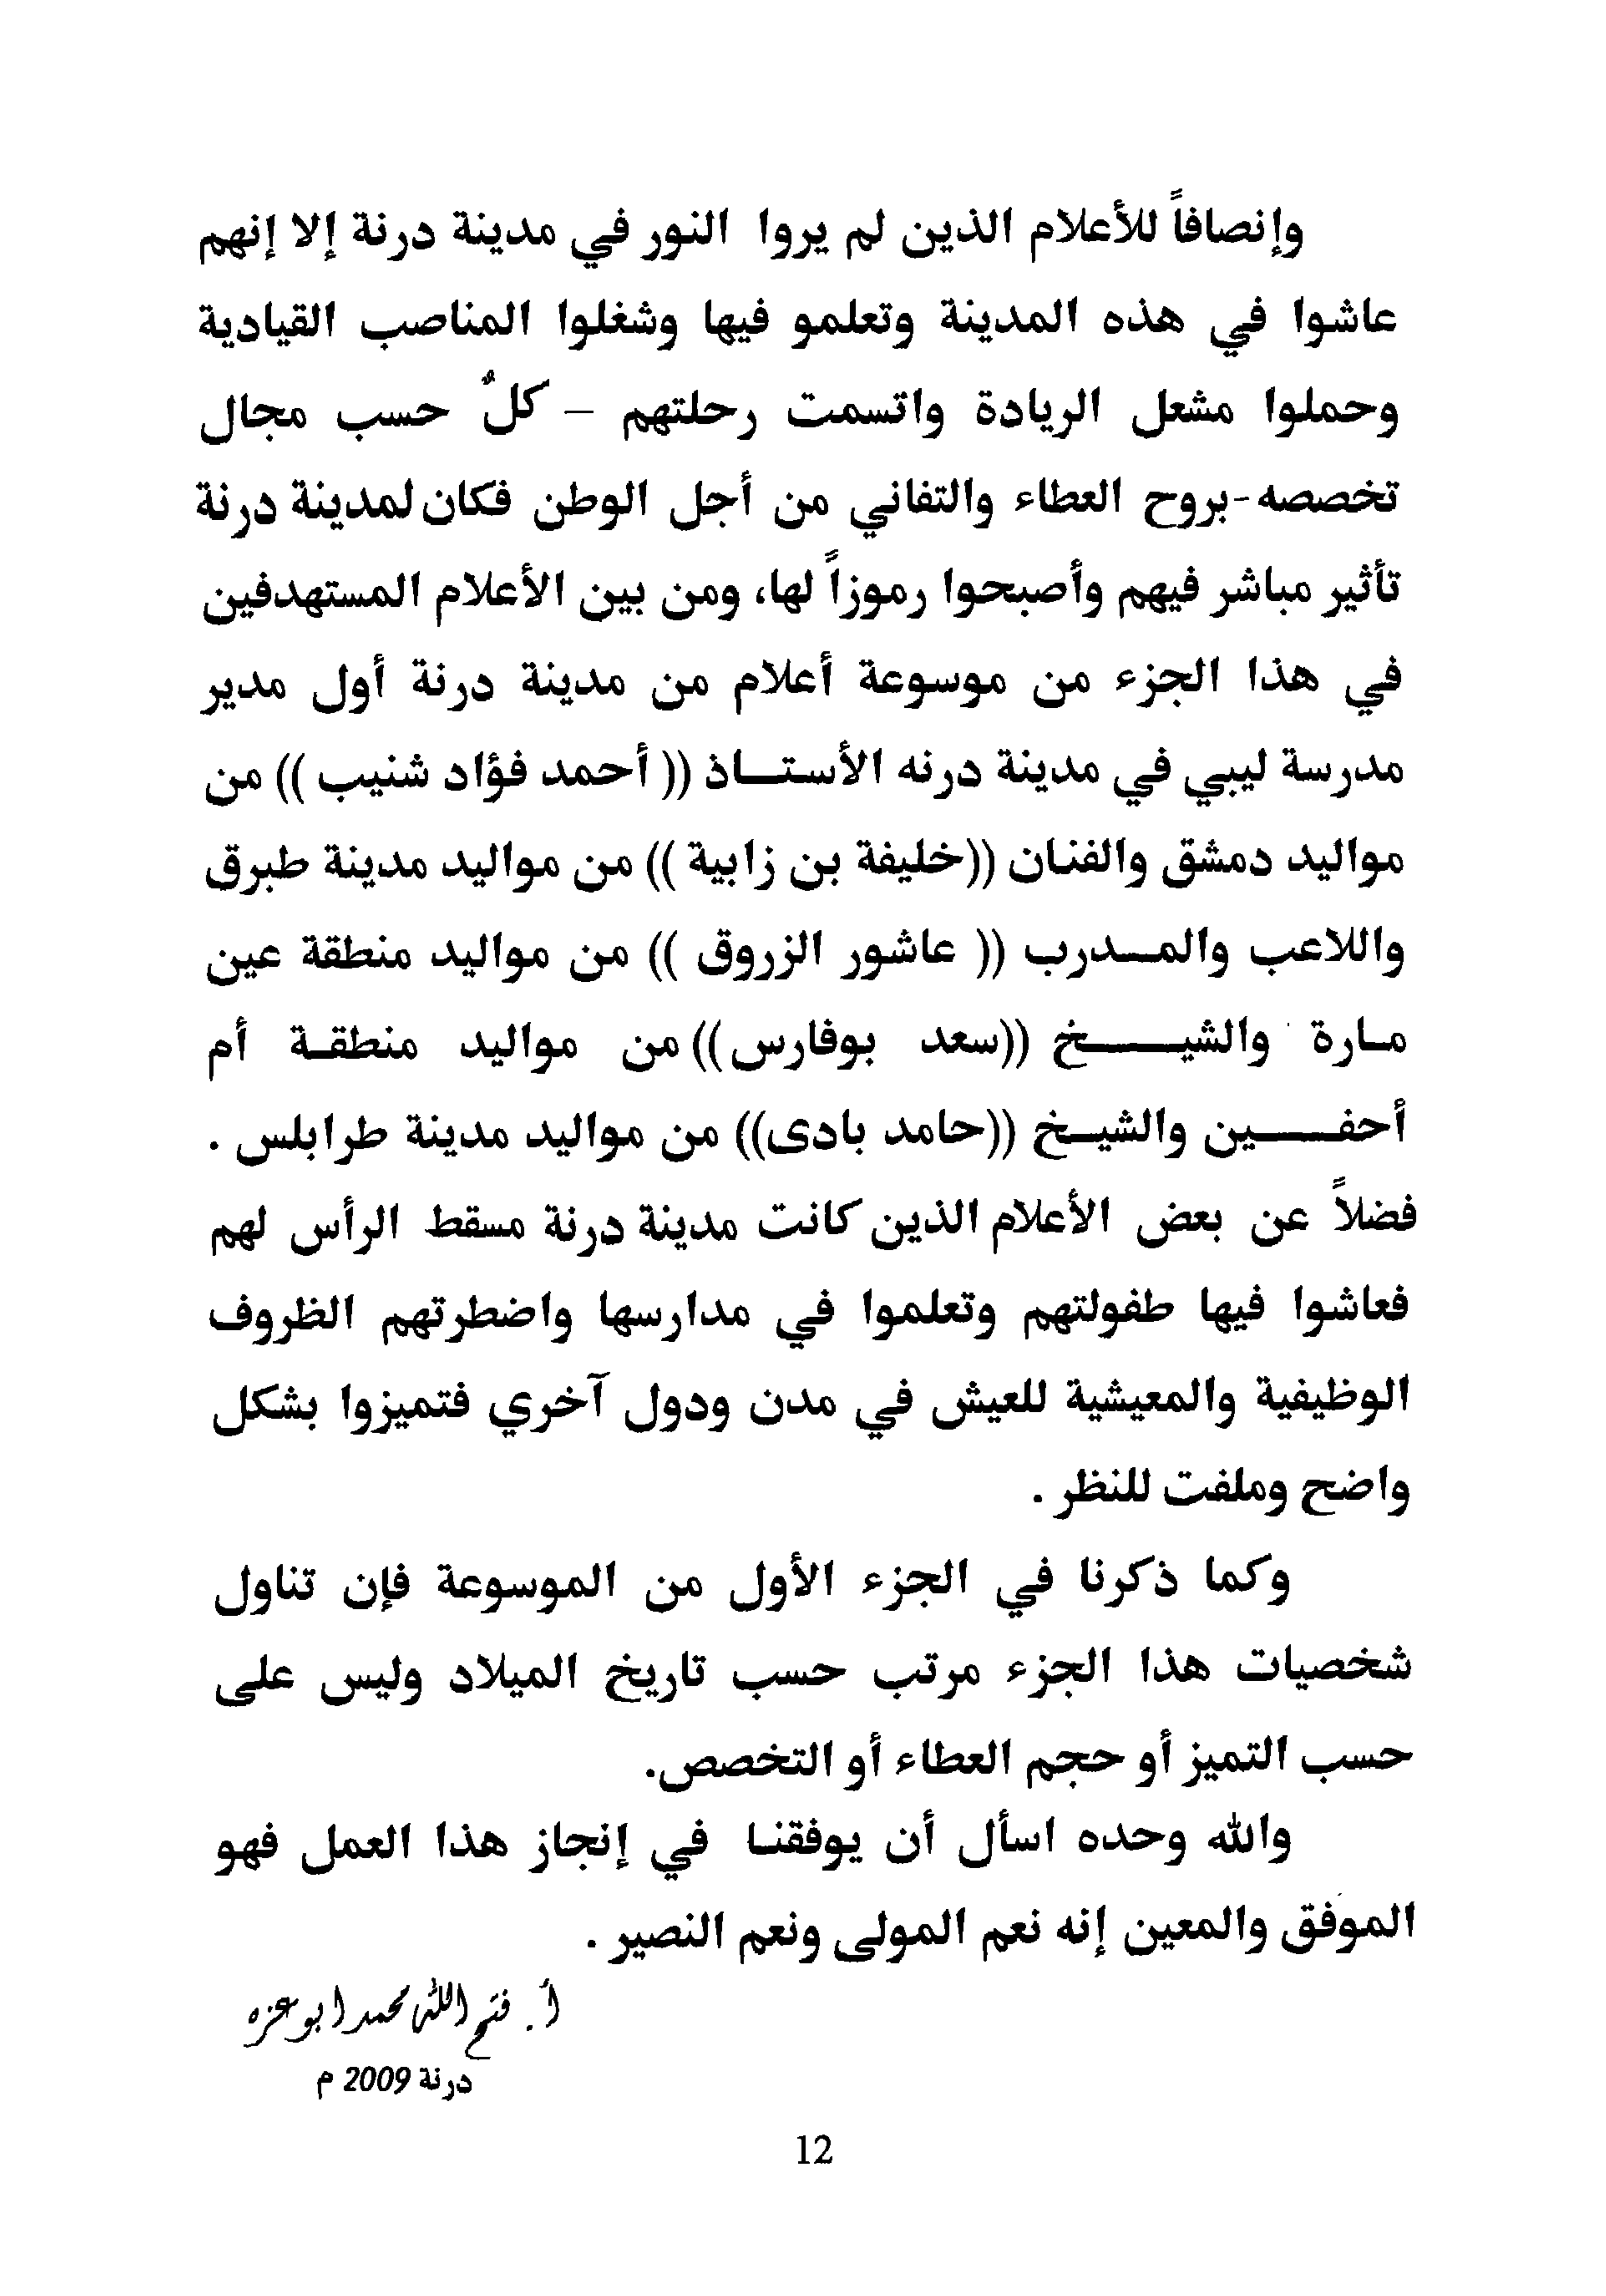 وإنصافاً للأعلام الذين لم يروا النور في مدينة درنة إلا إنهم
عاشوا في هذه المدينة وتعلمو فيها وشغلوا المناصب القيادية
وحملوا مشعل الريادة واتسمت رحلتهم – كلٌ حسب مجال
تخصصه-بروح العطاء والتفاني من أجل الوطن فكان لمدينة درنة
تأثير مباشر فيهم وأصبحوا رموزاً لها، ومن بين الأعلام المستهدفين
في هذا الجزء من موسوعة أعلام من مدينة درنة أول مدير
مدرسة ليبي في مدينة درنه الأستــاذ (( أحمد فؤاد شنيب )) من
مواليد دمشق والفنـان ((خليفة بن زابية )) من مواليد مدينة طبرق
واللاعب والمــدرب (( عاشور الزروق )) من مواليد منطقة عين
مـارة والشيــــخ ((سعد بوفارس)) من مواليد منطقـة أم
أحفــــين والشيـخ ((حامد بادى)) من مواليد مدينة طرابلس .
فضلاً عن بعض الأعلام الذين كانت مدينة درنة مسقط الرأس لهم
فعاشوا فيها طفولتهم وتعلموا في مدارسها واضطرتهم الظروف
الوظيفية والمعيشية للعيش في مدن ودول آخري فتميزوا بشكل
واضح وملفت للنظر .
وكما ذكرنا في الجزء الأول من الموسوعة فإن تناول
شخصيات هذا الجزء مرتب حسب تاريخ الميلاد وليس على
حسب التميز أو حجم العطاء أو التخصص.
والله وحده اسأل أن يوفقنـا في إنجاز هذا العمل فهو
الموفق والمعين إنه نعم المولى ونعم النصير .
أ. فتح الله محمد ابوعزه
درنة 2009 م
12